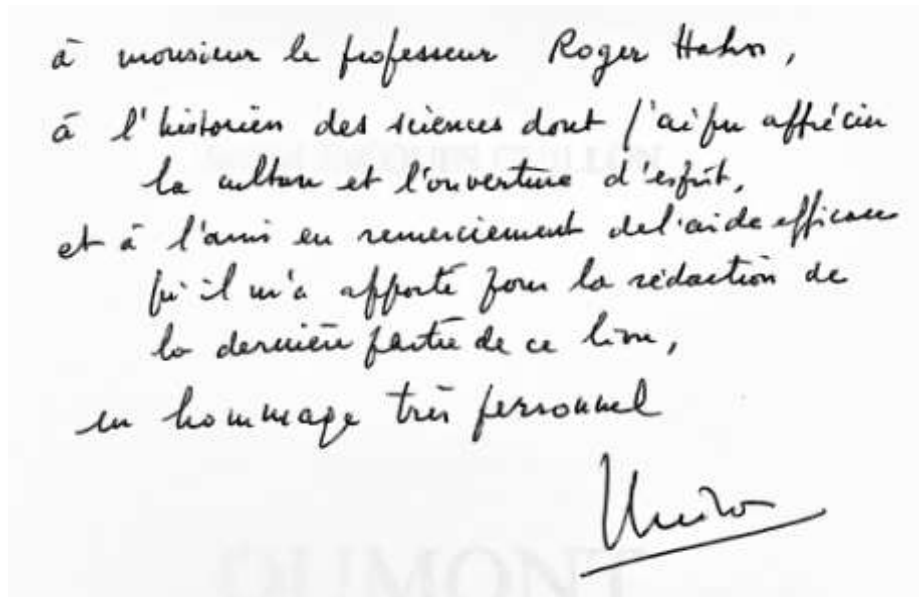 à monsieur le professeur Roger Hahn,
à l'historien des sciences dont j'ai pu apprécier
la culture et l'ouverture d'esprit,
et à l'ami en remerciement de l'aide efficace
qu'il m'a apporté pour la rédaction de
la dernière partie de ce livre,
en hommage très personnel
DUMONT